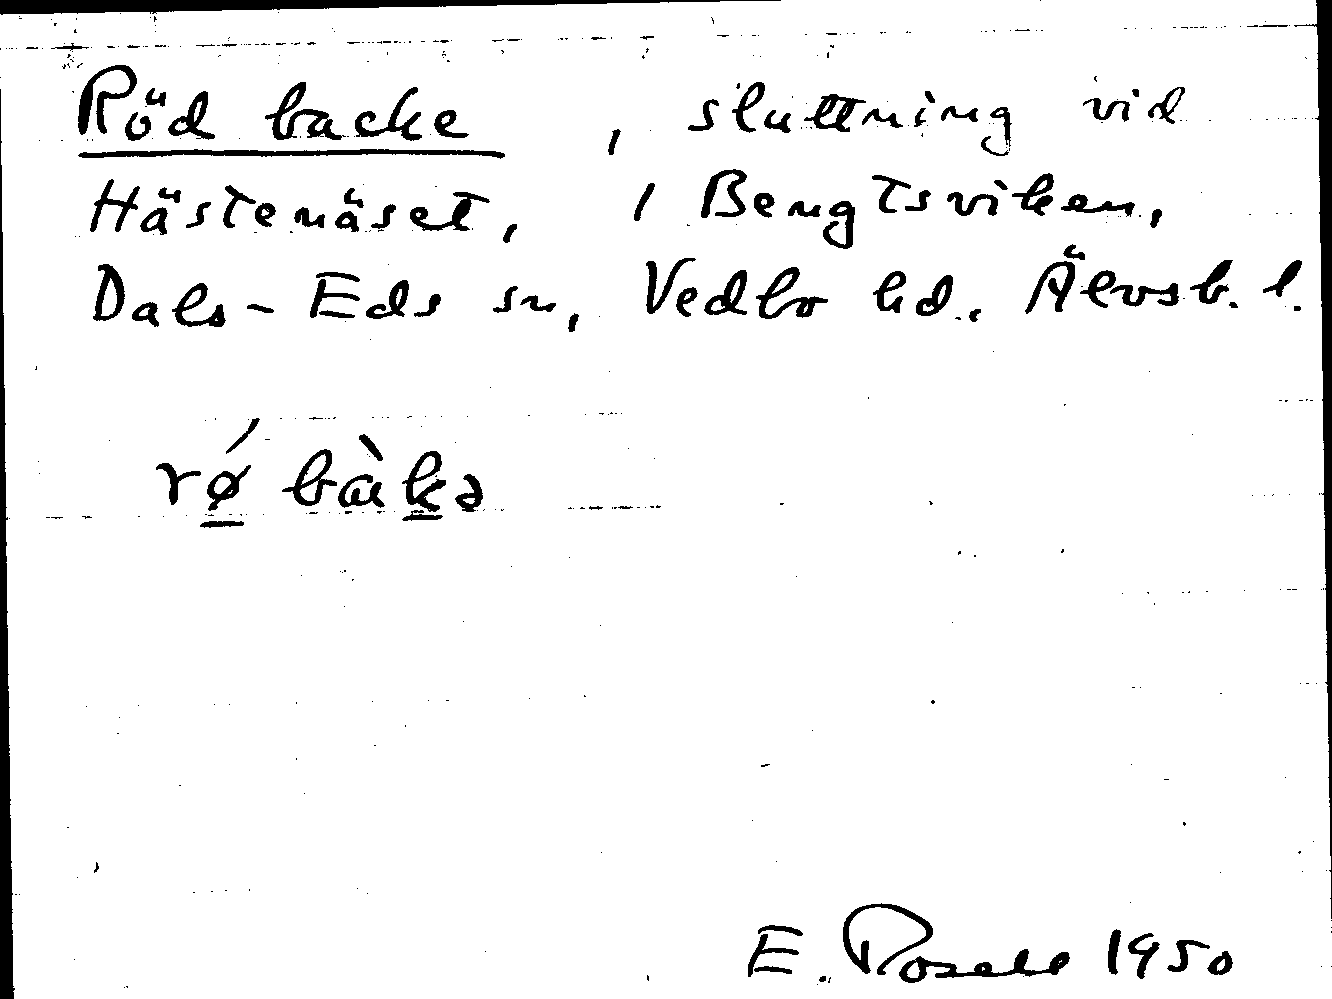 Röd backe, sluttning vid
Hästenäset, 1 Bengtsviken,
Dals-Eds sn, Vedbo hd. Älvsb. l.
rǿ bàkə
E. Rosell 1950